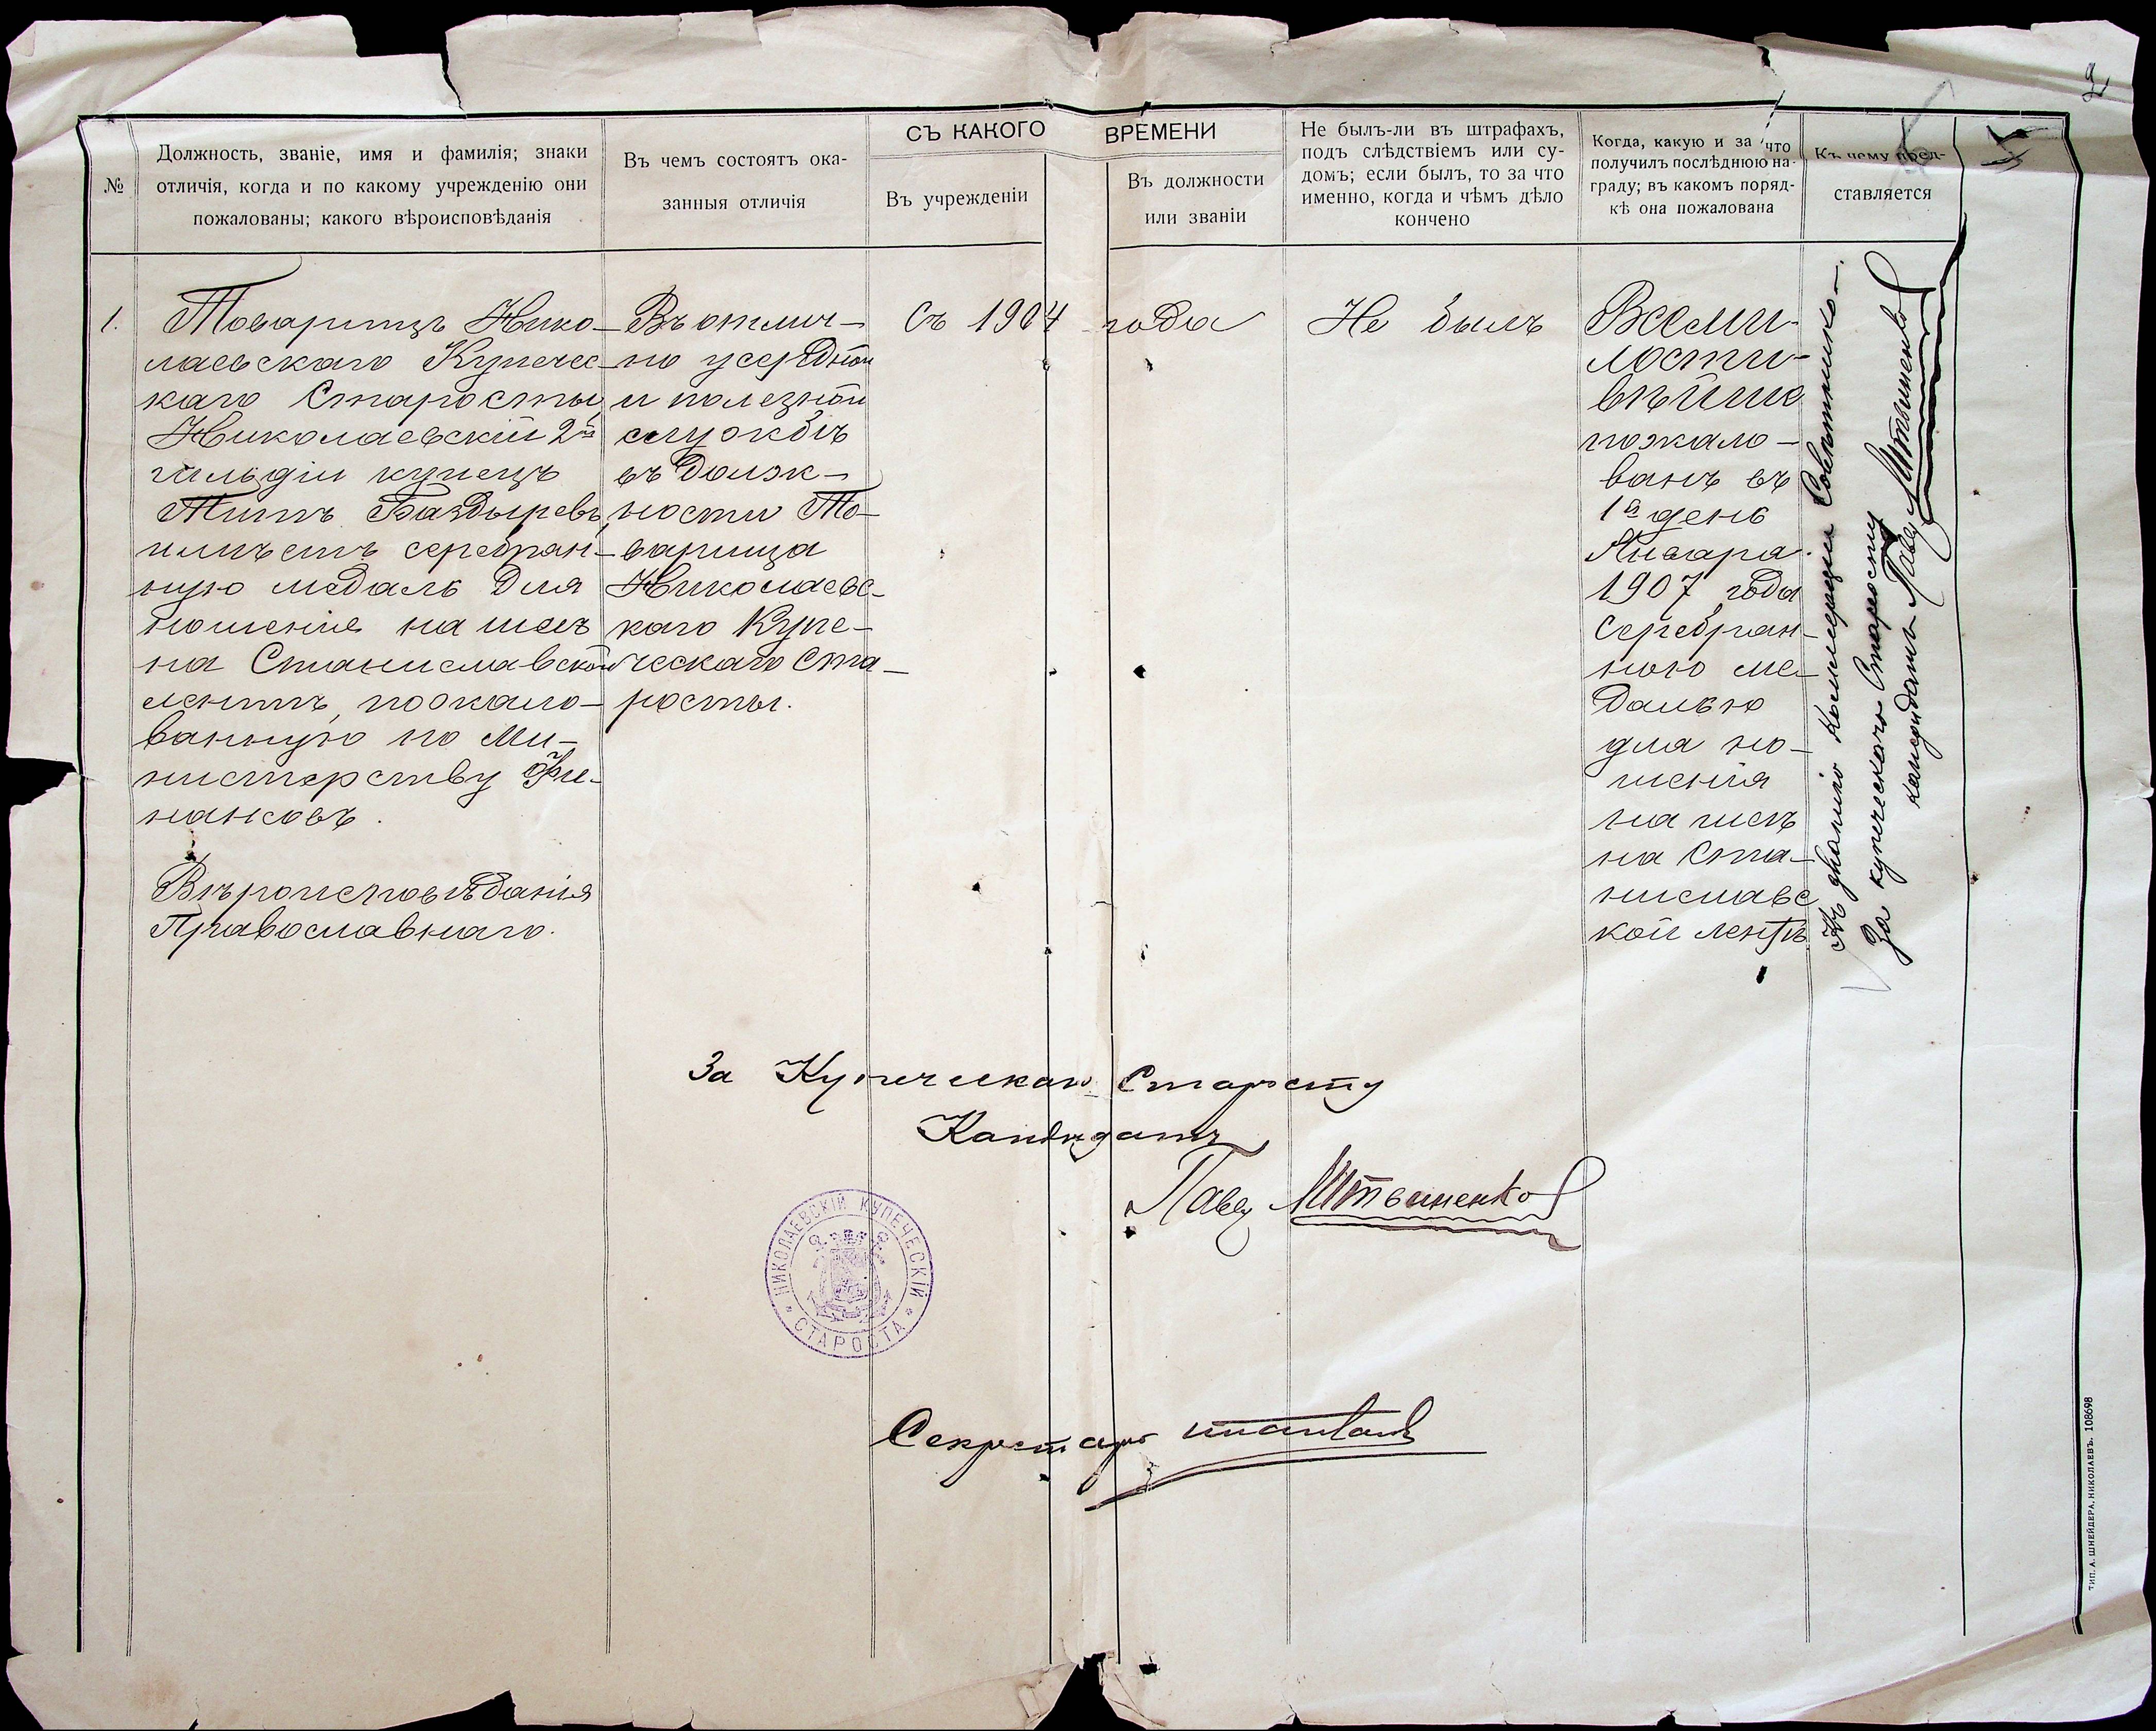 2
№
Должность, званіе, имя и фамилія; знаки
отличія, когда и по какому учрежденію они
пожалованы; какого вѣроисповѣданія
Въ чемъ состоятъ ока-
занныя отличія
СЪ КАКОГО ВРЕМЕНИ
Въ учрежденіи
Въ должности
или званіи
Не былъ-ли въ штрафахъ,
подъ слѣдствіемъ или су-
домъ; если былъ, то за что
именно, когда и чѣмъ дѣло
кончено
Когда, какую и за что
получилъ послѣднюю на-
граду; въ какомъ поряд-
кѣ она пожалована
Къ чему пред-
ставляется
1.
Товарищъ Нико-
лаевскаго Купечес-
каго Старосты,
Николаевскій 2й
гильдіи купецъ
Титъ Баздыревъ,
имѣетъ серебрян-
ную медаль для
ношенія на шеѣ
на Станиславской
лентѣ, пожало-
ванную по Ми-
нистерству Фи-
нансовъ.
Вѣроисповѣданія
Православнаго.
Въ отлич-
но усердной
и полезной
службѣ
въ долж-
ности То-
варища
Николаевс-
каго Купе-
ческаго Ста-
росты.
Съ 1904 года
Не былъ
Всеми-
лости-
вѣйше
пожало-
ванъ въ
1й день
Января
1907 года
серебрян-
ною ме-
далью
для но-
шенія
на шеѣ
на Ста-
ниславс
кой лентѣ.
Къ званію Коммерціи Совѣтника.
За купеческаго Старосту
кандидатъ Паве
За Купеческаго Старосту
Кандидатъ
Паве
НИКОЛАЕВСКІЙ КУПЕЧЕСКІЙ
СТАРОСТА
Секретарь
ТИП. А. ШНЕЙДЕРА, НИКОЛАЕВЪ. 108698